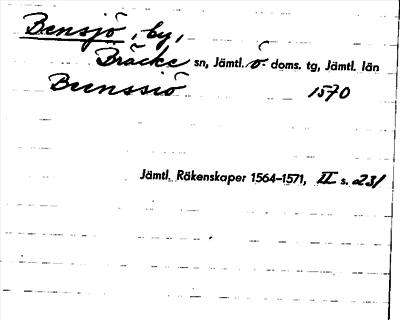 Bensjö, by,
Bräcke sn, Jämtl. ö. doms. tg, Jämtl. län
Bunssiö 1570
Jämtl. Räkenskaper 1564-1571, II s. 231